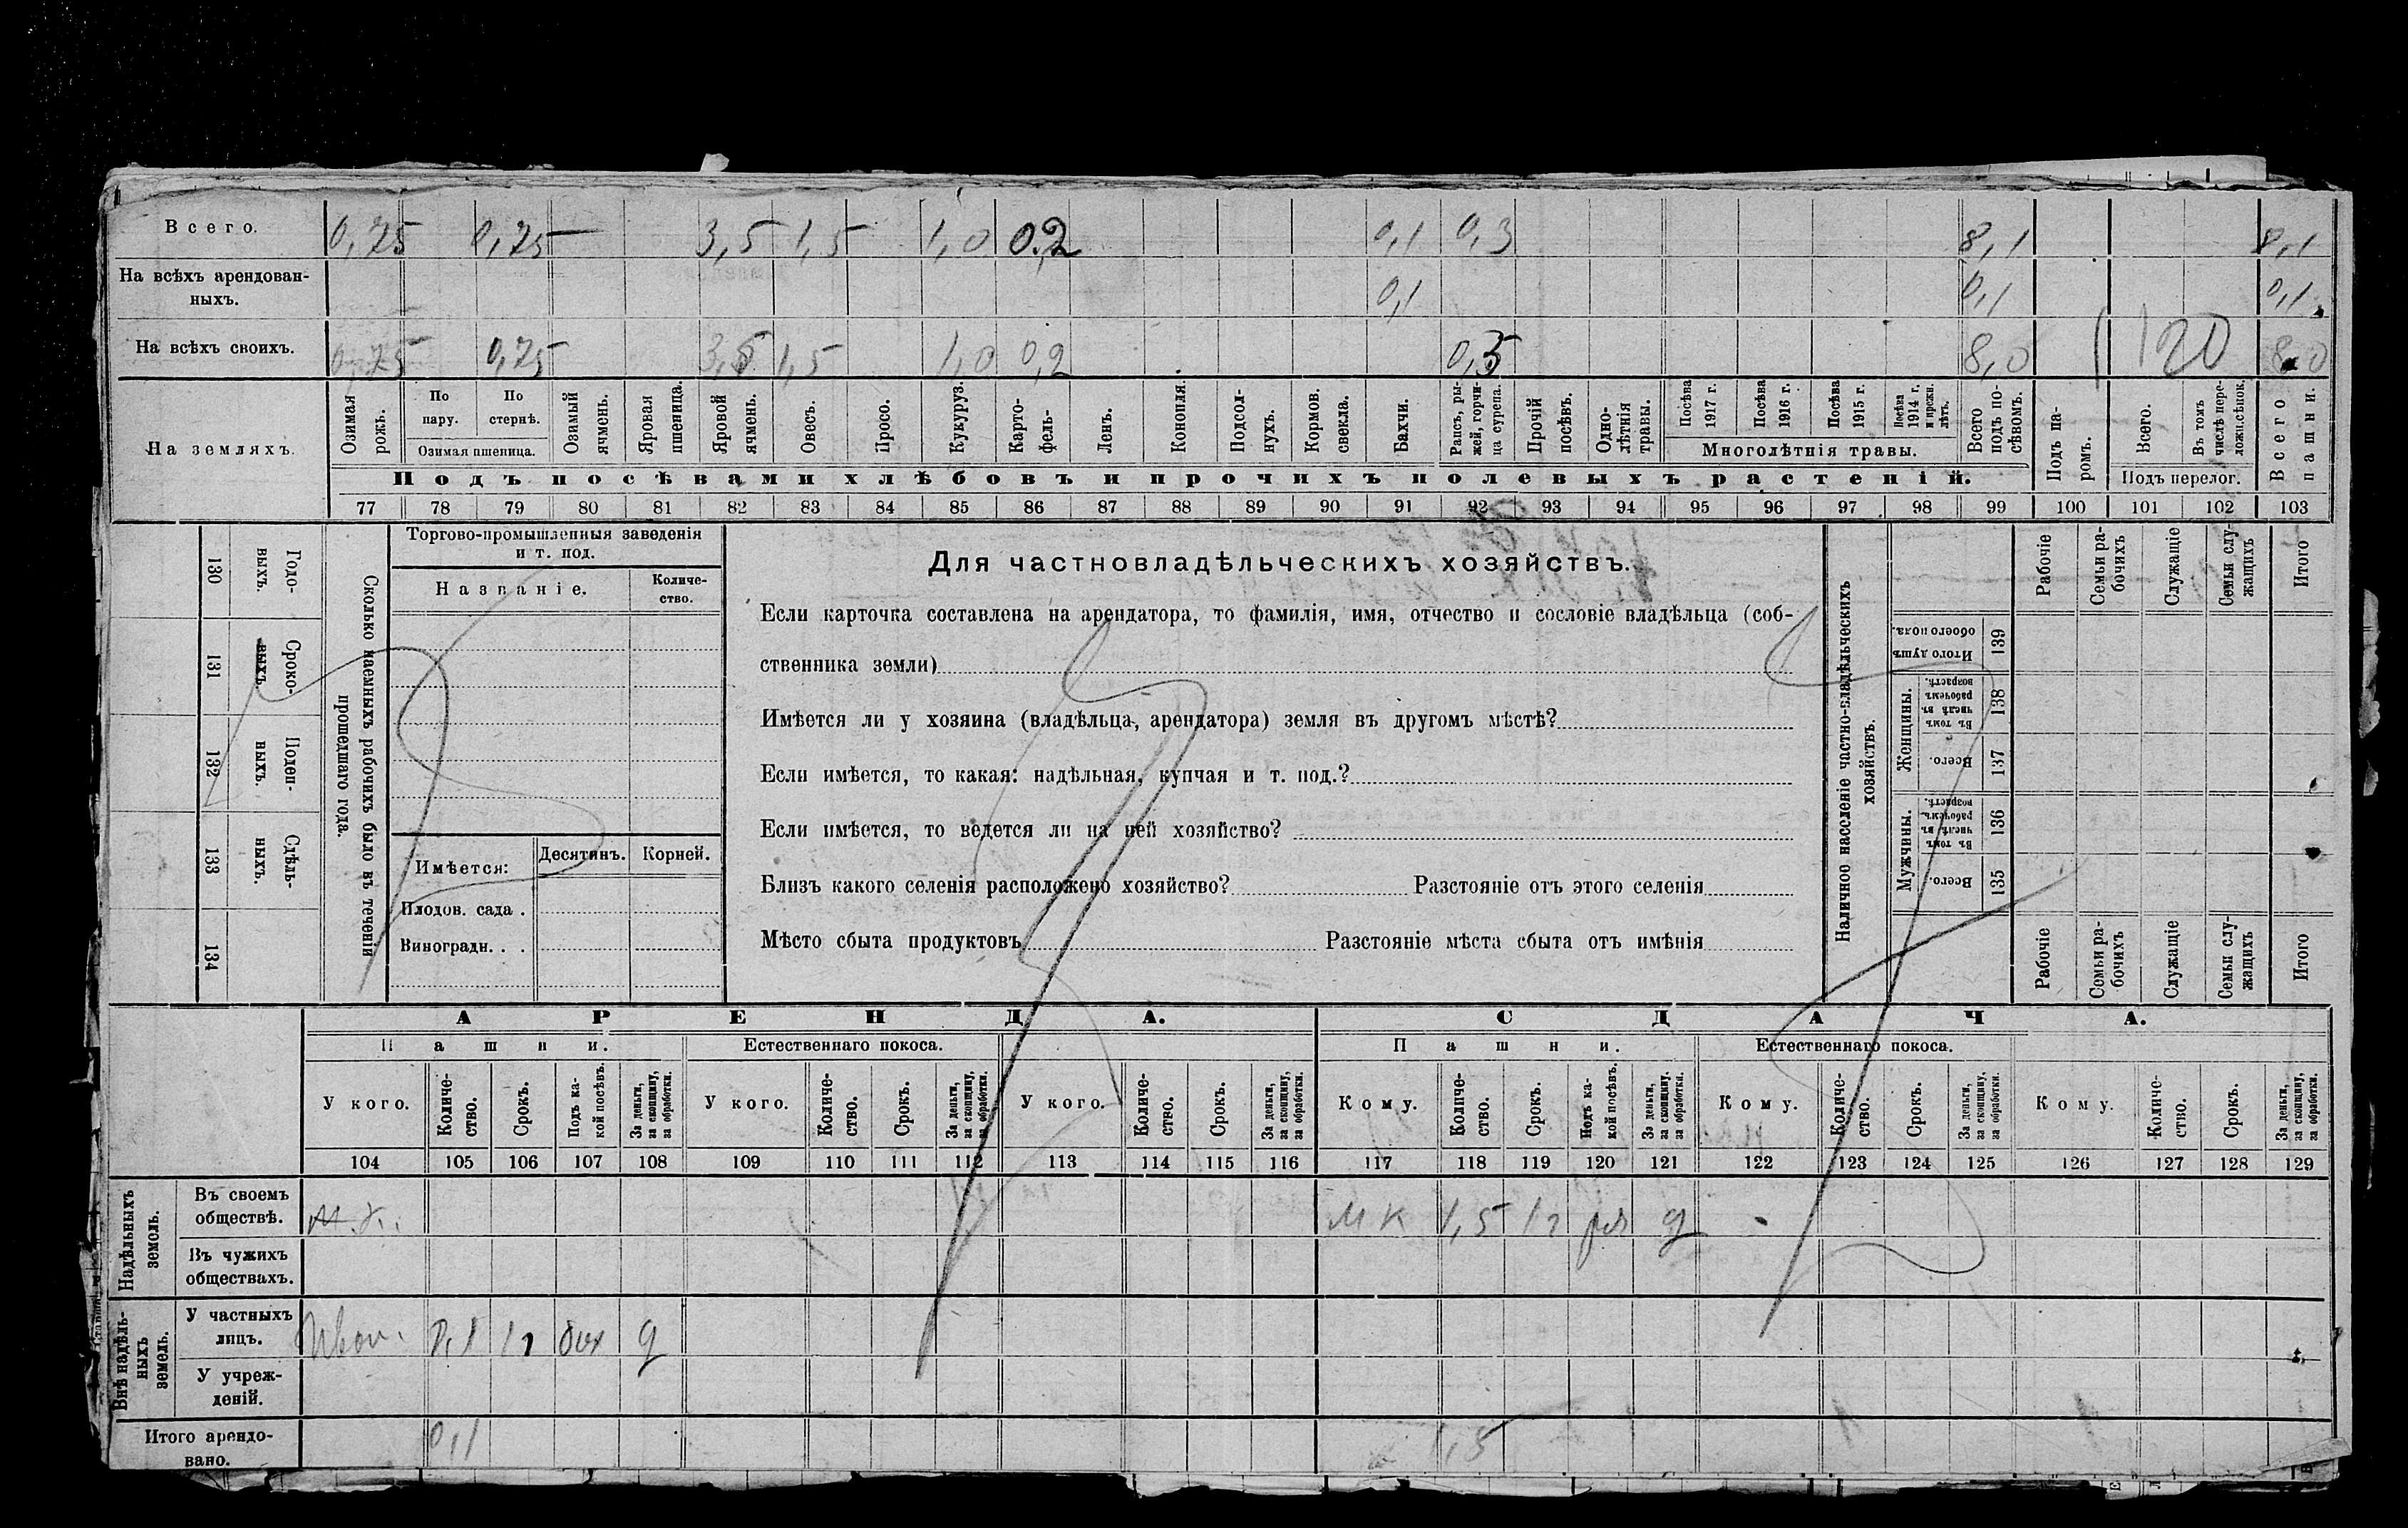 Всего. 0,75 0,75 3,5 1,5 1,0 0,2 0,1 0,3 8,1 8,1
На всѣхъ арендован-
ныхъ. 0,1 0,1 0,1
На всѣхъ своихъ. 0,75 0,75 3,5 1,5 1,0 0,2 0,3 8,0 120 8,0
На земляхъ.
Озимая рожь.
По пару.
По стернѣ.
Озимая пшеница.
Озимый ячмень.
Яровая пшеница.
Яровой ячмень.
Овесъ.
Просо.
Кукуруз.
Карто-
фель-
Ленъ.
Конопля.
Подсол-
нухъ.
Кормов. свекла.
Бахчи.
Рапсъ, ры-
жей, горчи-
ца сурепа.
Прочій посѣвъ.
Одно-
лѣтнія травы.
Посѣва 1917 г.
Посѣва 1916 г.
Посѣва 1915 г.
Посѣва 1914 г. и прежн. лѣтъ.
Многолѣтнія травы.
Всего подъ по-
сѣвомъ.
Подъ па-
ромъ.
Всего.
Въ томъ числѣ пере-
ложн.сѣнок.
Подъ перелог.
Всего пашни.
Подъ посѣвами хлѣбовъ и прочихъ полевыхъ растеній.
77 78 79 80 81 82 83 84 85 86 87 88 89 90 91 92 93 94 95 96 97 98 99 100 101 102 103
130 Годо-
выхъ.
131 Сроко-
выхъ
132 Поден-
ныхъ.
133 Сдѣль-
ныхъ.
134
Сколько наемныхъ рабочихъ было въ теченіи
прошедшаго года.
Торгово-промышленныя заведенія
и т. под.
Названіе.
Количе-
ство.
Имѣется: Десятинъ. Корней.
Плодов. сада .
Виноградн. . .
Для частновладѣльческихъ хозяйствъ.
Если карточка составлена на арендатора, то фамилія, имя, отчество и сословіе владѣльца (соб-
ственника земли)
Имѣется ли у хозяина (владѣльца, арендатора) земля въ другомъ мѣстѣ?
Если имѣется, то какая: надѣльная, купчая и т. под.?
Если имѣется, то ведется ли на ней хозяйство?
Близъ какого селенія расположено хозяйство? Разстояніе отъ этого селенія
Мѣсто сбыта продуктовъ Разстояніе мѣста сбыта отъ имѣнія
Наличное населеніе частно-владѣльческихъ
хозяйствъ.
Рабочіе
Семьи ра-
бочихъ
Служащіе
Семьи слу-
жащихъ
Итого
Итого душъ обоего пола. 139
Женщины.
Въ томъ числѣ въ рабочемъ возрастѣ. 138
Всего. 137
Мужчины.
Въ томъ числѣ въ рабочемъ возрастѣ. 136
Всего. 135
Рабочіе
Семьи ра-
бочихъ
Служащіе
Семьи слу-
жащихъ
Итого
АРЕНДА. СДАЧА.
Пашни. Естественнаго покоса. Пашни. Естественнаго покоса.
У кого.
Количе-
ство.
Срокъ.
Подъ ка-
кой посѣвъ.
За деньги, за скопщину, за обработки.
У кого.
Количе-
ство.
Срокъ.
За деньги, за скопщину, за обработки.
У кого.
Количе-
ство.
Срокъ.
За деньги, за скопщину, за обработки.
Кому.
Количе-
ство.
Срокъ.
Подъ ка-
кой посѣвъ.
За деньги, за скопщину. за обработки.
Кому.
Количе-
ство.
Срокъ.
За деньги, за скопщину, за обработки.
Кому.
Количе-
ство.
Срокъ.
За деньги, за скопщину, за обработки.
104 105 106 107 108 109 110 111 112 113 114 115 116 117 118 119 120 121 122 123 124 125 126 127 128 129
Надѣльныхъ
земель.
Въ своемъ
обществѣ. М К 1,5 1 г д
Въ чужихъ
обществахъ.
Внѣ надѣль-
ныхъ
земель.
У частныхъ
лицъ. 0,1 1 г бах д
У учреж-
деній.
Итого арендо-
вано. 0,1 1,5